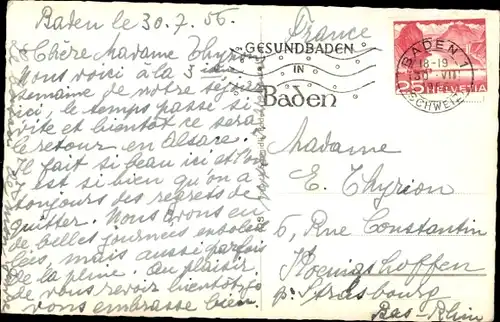 Baden le 30.7.56.
Chère Madame Thyrion
Nous voici à la 3ième
semaine de notre séjour
ici, le temps passe si
vite et bientôt ce sera
le retour en Alsace.
Il fait si beau ici et l'on
y est si bien qu'on a
toujours des regrets de
quitter. Nous avons eu
de belles journées ensoleil-
lées, mais aussi parfois
de la pluie. Au plaisir
de vous revoir bientôt je
vous embrasse bien
France
GESUNDBADEN
IN
Baden
BADEN 1
18-19
30.VII
(SCHWEIZ)
25 HELVETIA
Madame
E. Thyrion
6, Rue Constantin
Koenigshoffen
p. Strasbourg
Bas-Rhin